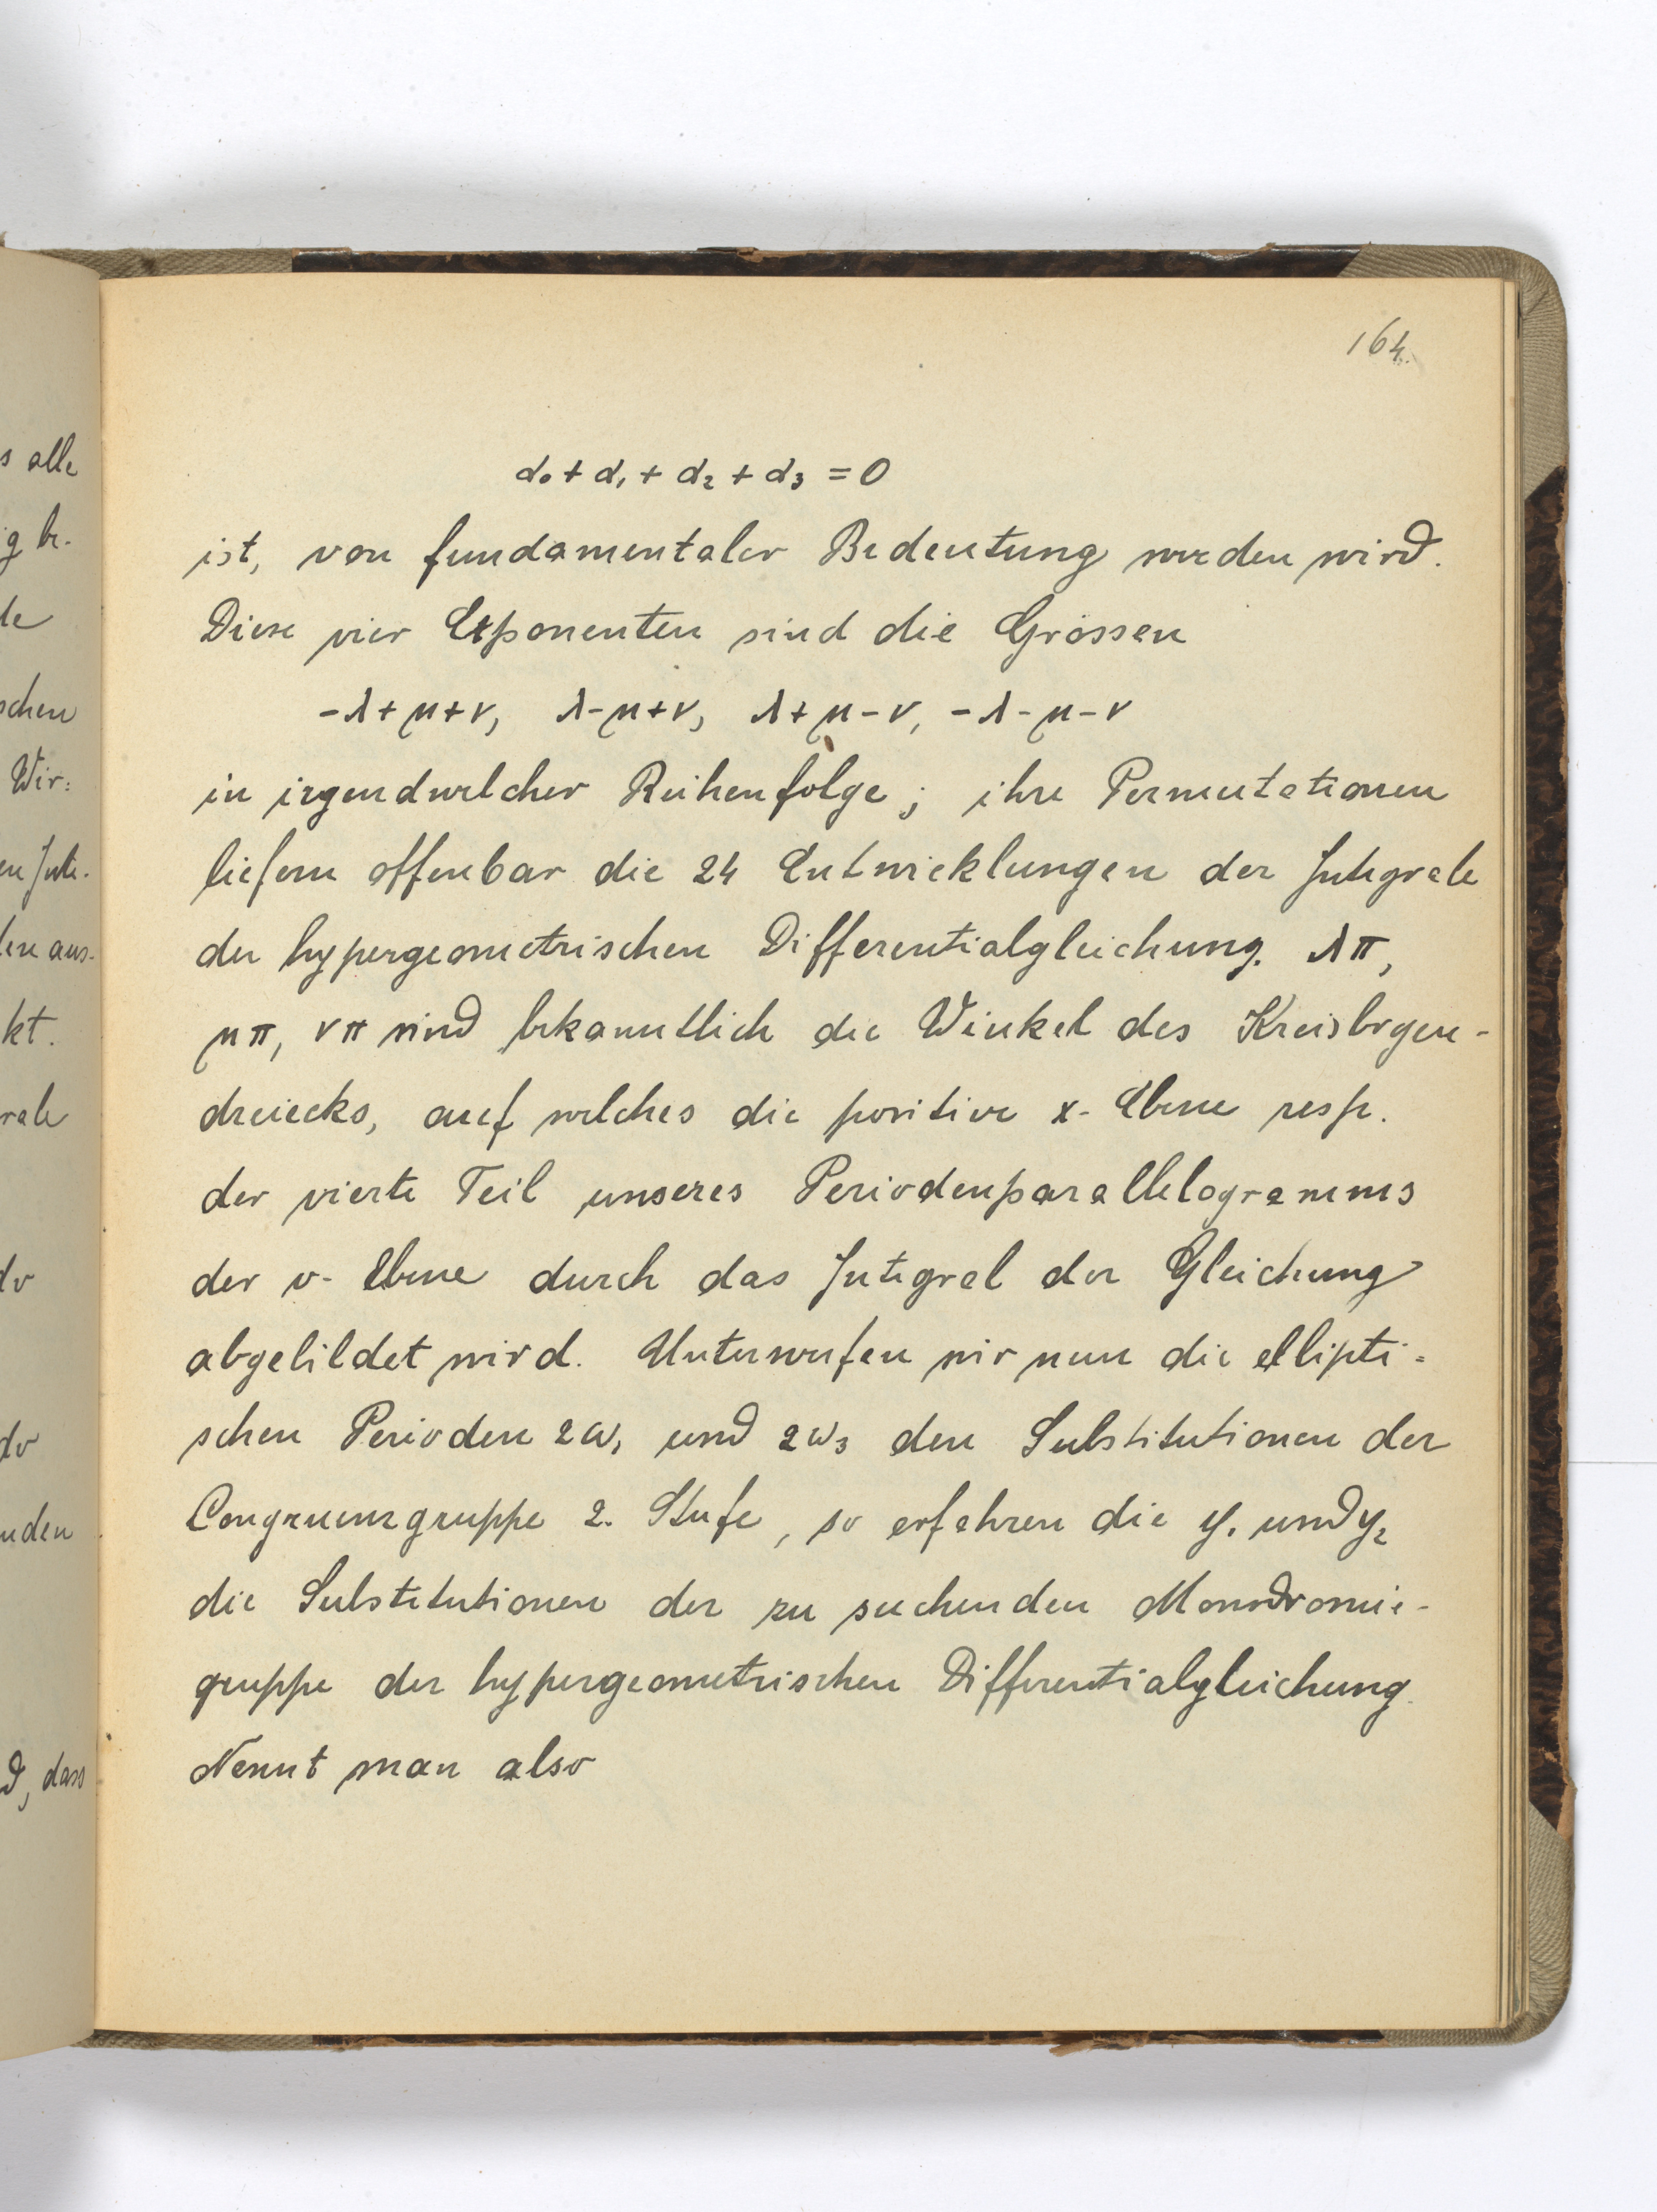 164.
α₀ + α₁ + α₂ + α₃ = 0
ist, von fundamentaler Bedeutung werden wird.
Diese vier Exponenten sind die Grössen
-λ+μ+ν, λ-μ+ν, λ+μ-ν, -λ-μ-ν
in irgendwelcher Reihenfolge; ihre Permutationen
liefern offenbar die 24 Entwicklungen der Integrale
der hypergeometrischen Differentialgleichung. λπ,
μπ, νπ sind bekanntlich die Winkel des Kreisbogen-
dreiecks, auf welches die positive x-Ebene resp.
der vierte Teil unseres Periodenparallelogramms
der v-Ebene durch das Integral der Gleichung
abgebildet wird. Unterwerfen wir nun die ellipti-
schen Perioden 2ω₁ und 2ω₃ den Substitutionen der
Congruenzgruppe 2. Stufe, so erfahren die y₁ und y₂
die Substitutionen der zu suchenden Monodromie-
gruppe der hypergeometrischen Differentialgleichung.
Nennt man also
s alle
g be-
de
schen
Wir-
en Inte-
len aus-
kt.
rale
dv
dv
nden
d, dass